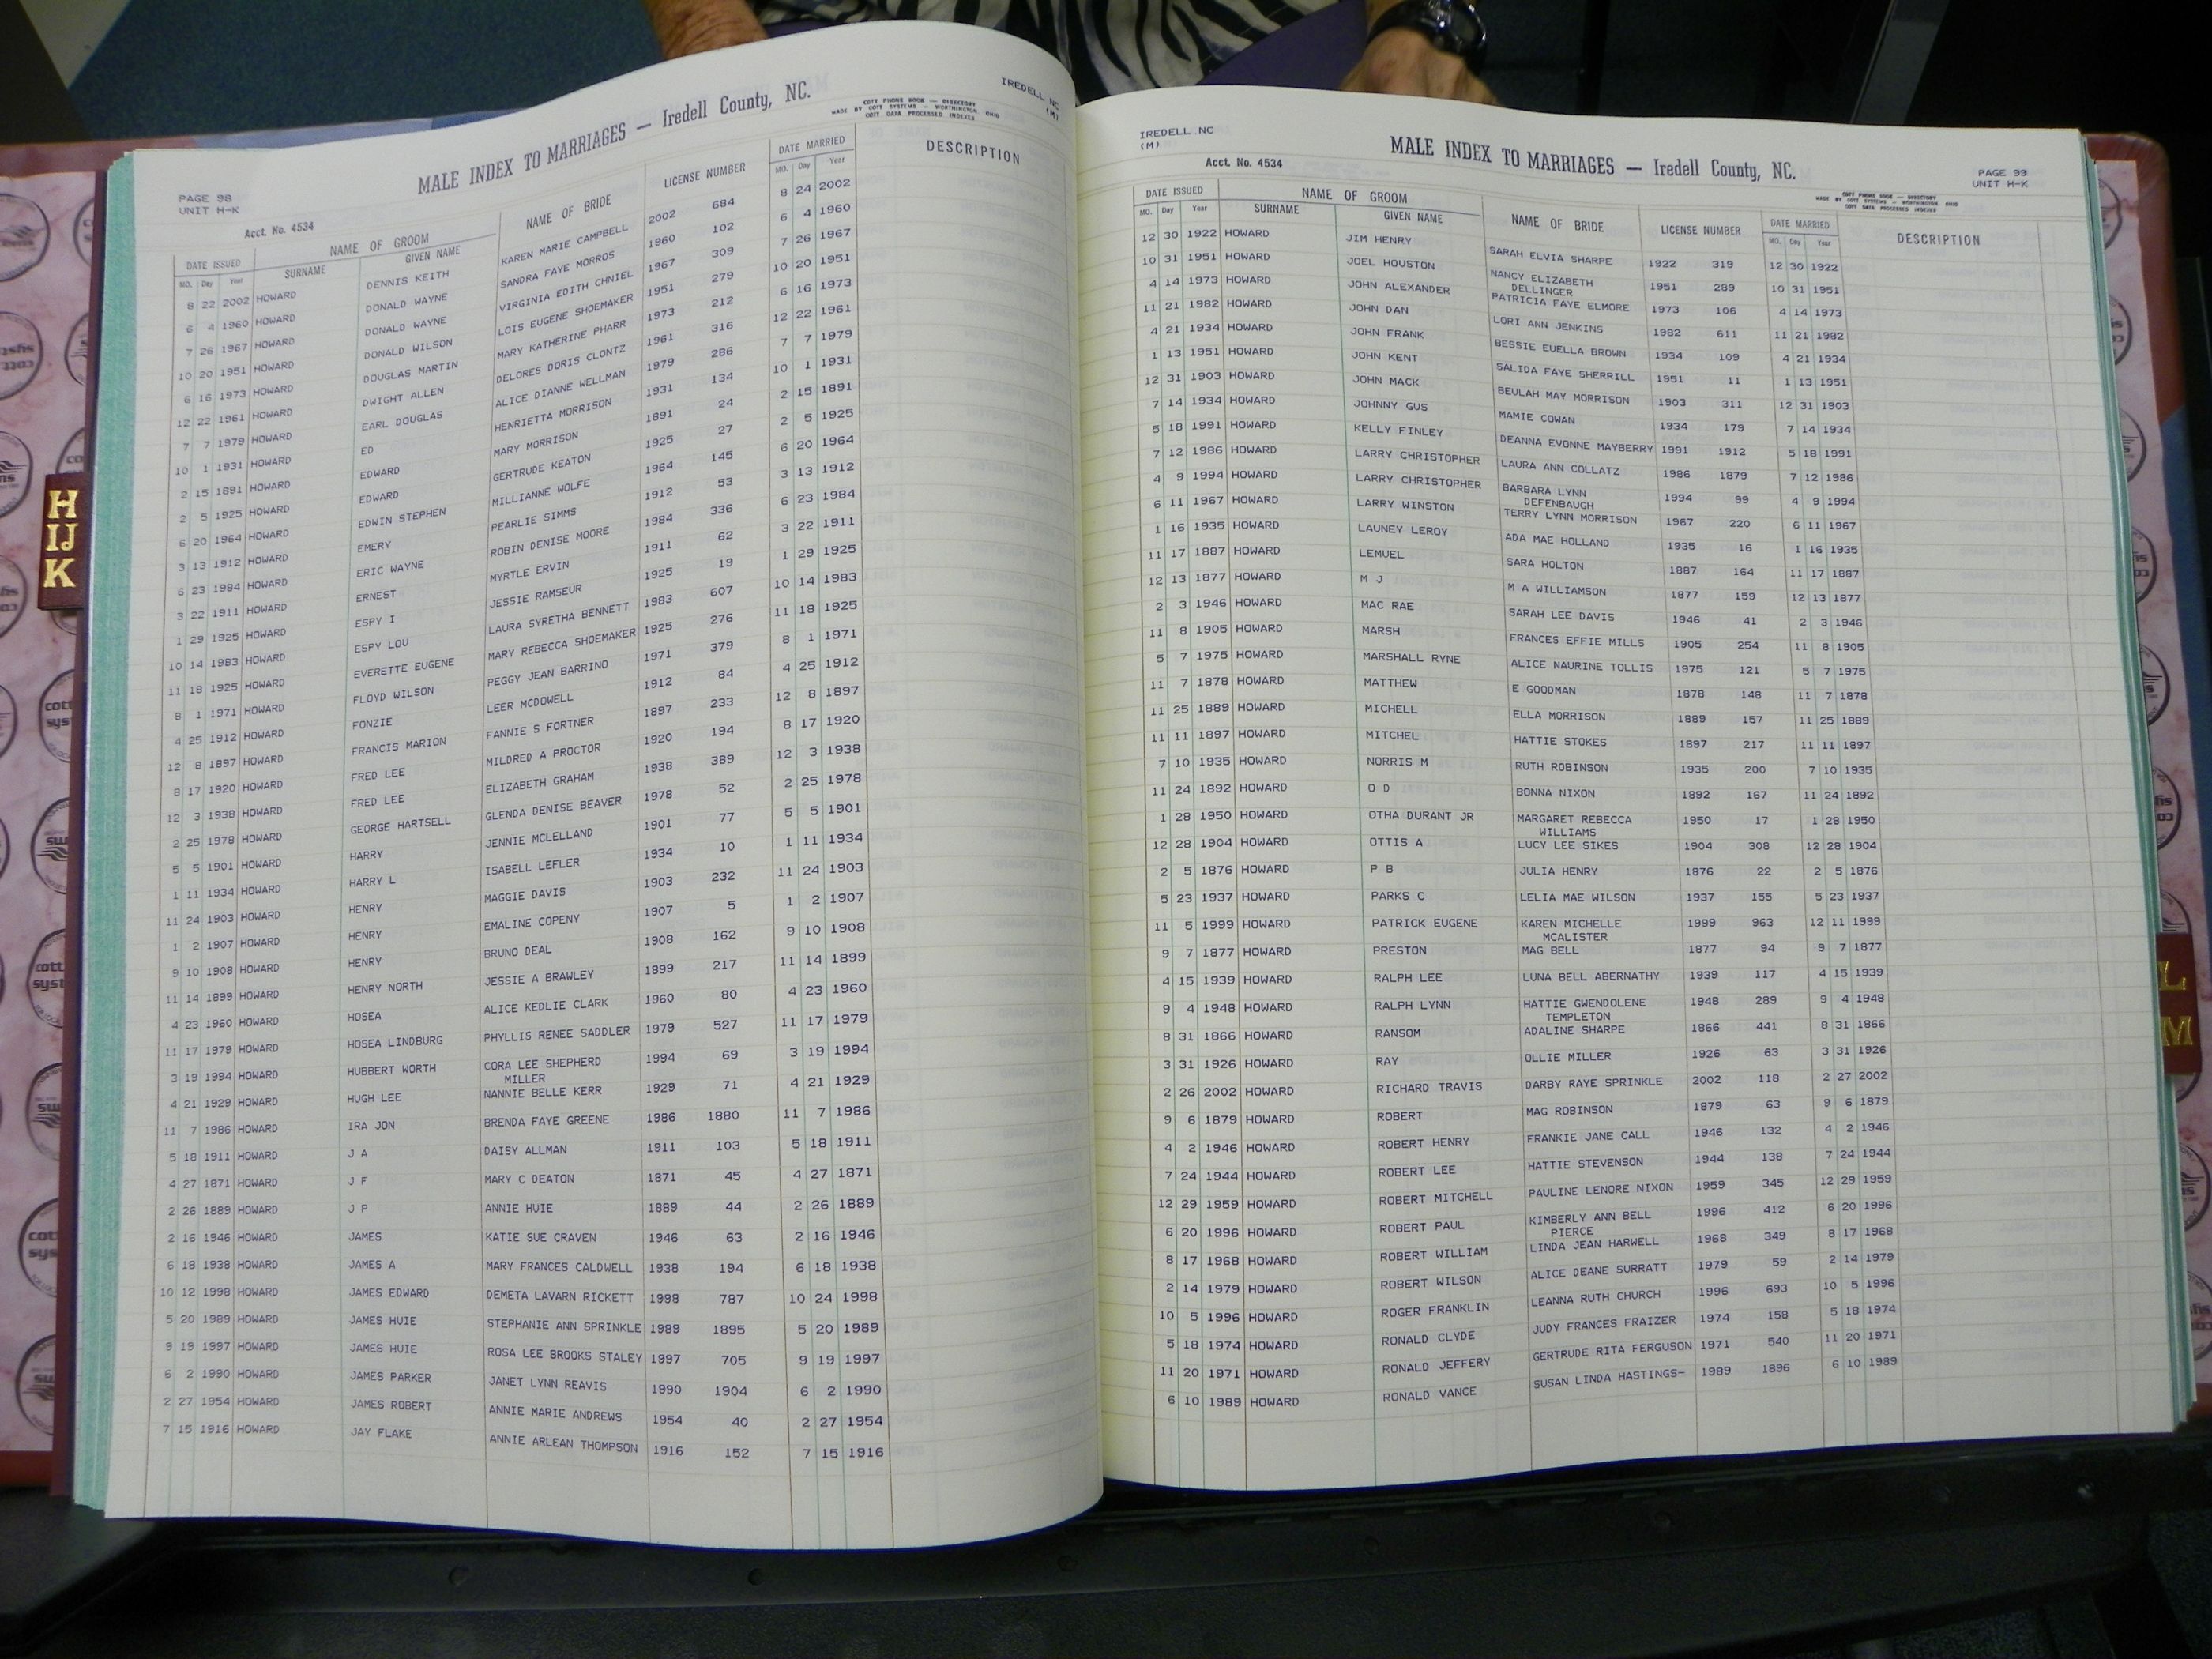 MALE INDEX TO MARRIAGES — Iredell County, NC.
IREDELL NC
(M)
COTT PHONE BOOK — DIRECTORY
MADE BY COTT SYSTEMS — WORTHINGTON OHIO
COTT DATA PROCESSED INDEXES
PAGE 98
UNIT H-K
Acct. No. 4534
DATE ISSUED NAME OF GROOM NAME OF BRIDE LICENSE NUMBER DATE MARRIED DESCRIPTION
MO. Day Year SURNAME GIVEN NAME MO. Day Year
8 22 2002 HOWARD DENNIS KEITH KAREN MARIE CAMPBELL 2002 684 8 24 2002
6 4 1960 HOWARD DONALD WAYNE SANDRA FAYE MORROS 1960 102 6 4 1960
7 26 1967 HOWARD DONALD WAYNE VIRGINIA EDITH CHNIEL 1967 309 7 26 1967
10 20 1951 HOWARD DONALD WILSON LOIS EUGENE SHOEMAKER 1951 279 10 20 1951
6 16 1973 HOWARD DOUGLAS MARTIN MARY KATHERINE PHARR 1973 212 6 16 1973
12 22 1961 HOWARD DWIGHT ALLEN DELORES DORIS CLONTZ 1961 316 12 22 1961
7 7 1979 HOWARD EARL DOUGLAS ALICE DIANNE WELLMAN 1979 286 7 7 1979
10 1 1931 HOWARD ED HENRIETTA MORRISON 1931 134 10 1 1931
2 15 1891 HOWARD EDWARD MARY MORRISON 1891 24 2 15 1891
2 5 1925 HOWARD EDWARD GERTRUDE KEATON 1925 27 2 5 1925
6 20 1964 HOWARD EDWIN STEPHEN MILLIANNE WOLFE 1964 145 6 20 1964
3 13 1912 HOWARD EMERY PEARLIE SIMMS 1912 53 3 13 1912
6 23 1984 HOWARD ERIC WAYNE ROBIN DENISE MOORE 1984 336 6 23 1984
3 22 1911 HOWARD ERNEST MYRTLE ERVIN 1911 62 3 22 1911
1 29 1925 HOWARD ESPY I JESSIE RAMSEUR 1925 19 1 29 1925
10 14 1983 HOWARD ESPY LOU LAURA SYRETHA BENNETT 1983 607 10 14 1983
11 18 1925 HOWARD EVERETTE EUGENE MARY REBECCA SHOEMAKER 1925 276 11 18 1925
8 1 1971 HOWARD FLOYD WILSON PEGGY JEAN BARRINO 1971 379 8 1 1971
4 25 1912 HOWARD FONZIE LEER MCDOWELL 1912 84 4 25 1912
12 8 1897 HOWARD FRANCIS MARION FANNIE S FORTNER 1897 233 12 8 1897
8 17 1920 HOWARD FRED LEE MILDRED A PROCTOR 1920 194 8 17 1920
12 3 1938 HOWARD FRED LEE ELIZABETH GRAHAM 1938 389 12 3 1938
2 25 1978 HOWARD GEORGE HARTSELL GLENDA DENISE BEAVER 1978 52 2 25 1978
5 5 1901 HOWARD HARRY JENNIE MCLELLAND 1901 77 5 5 1901
1 11 1934 HOWARD HARRY L ISABELL LEFLER 1934 10 1 11 1934
11 24 1903 HOWARD HENRY MAGGIE DAVIS 1903 232 11 24 1903
1 2 1907 HOWARD HENRY EMALINE COPENY 1907 5 1 2 1907
9 10 1908 HOWARD HENRY BRUNO DEAL 1908 162 9 10 1908
11 14 1899 HOWARD HENRY NORTH JESSIE A BRAWLEY 1899 217 11 14 1899
4 23 1960 HOWARD HOSEA ALICE KEDLIE CLARK 1960 80 4 23 1960
11 17 1979 HOWARD HOSEA LINDBURG PHYLLIS RENEE SADDLER 1979 527 11 17 1979
3 19 1994 HOWARD HUBBERT WORTH CORA LEE SHEPHERD 1994 69 3 19 1994
MILLER
4 21 1929 HOWARD HUGH LEE NANNIE BELLE KERR 1929 71 4 21 1929
11 7 1986 HOWARD IRA JON BRENDA FAYE GREENE 1986 1880 11 7 1986
5 18 1911 HOWARD J A DAISY ALLMAN 1911 103 5 18 1911
4 27 1871 HOWARD J F MARY C DEATON 1871 45 4 27 1871
2 26 1889 HOWARD J P ANNIE HUIE 1889 44 2 26 1889
2 16 1946 HOWARD JAMES KATIE SUE CRAVEN 1946 63 2 16 1946
6 18 1938 HOWARD JAMES A MARY FRANCES CALDWELL 1938 194 6 18 1938
10 12 1998 HOWARD JAMES EDWARD DEMETA LAVARN RICKETT 1998 787 10 24 1998
5 20 1989 HOWARD JAMES HUIE STEPHANIE ANN SPRINKLE 1989 1895 5 20 1989
9 19 1997 HOWARD JAMES HUIE ROSA LEE BROOKS STALEY 1997 705 9 19 1997
6 2 1990 HOWARD JAMES PARKER JANET LYNN REAVIS 1990 1904 6 2 1990
2 27 1954 HOWARD JAMES ROBERT ANNIE MARIE ANDREWS 1954 40 2 27 1954
7 15 1916 HOWARD JAY FLAKE ANNIE ARLEAN THOMPSON 1916 152 7 15 1916
IREDELL NC
(M)
MALE INDEX TO MARRIAGES — Iredell County, NC.
Acct. No. 4534
PAGE 99
UNIT H-K
COTT PHONE BOOK — DIRECTORY
MADE BY COTT SYSTEMS — WORTHINGTON OHIO
COTT DATA PROCESSED INDEXES
DATE ISSUED NAME OF GROOM NAME OF BRIDE LICENSE NUMBER DATE MARRIED DESCRIPTION
MO. Day Year SURNAME GIVEN NAME MO. Day Year
12 30 1922 HOWARD JIM HENRY SARAH ELVIA SHARPE 1922 319 12 30 1922
10 31 1951 HOWARD JOEL HOUSTON NANCY ELIZABETH 1951 289 10 31 1951
DELLINGER
4 14 1973 HOWARD JOHN ALEXANDER PATRICIA FAYE ELMORE 1973 106 4 14 1973
11 21 1982 HOWARD JOHN DAN LORI ANN JENKINS 1982 611 11 21 1982
4 21 1934 HOWARD JOHN FRANK BESSIE EUELLA BROWN 1934 109 4 21 1934
1 13 1951 HOWARD JOHN KENT SALIDA FAYE SHERRILL 1951 11 1 13 1951
12 31 1903 HOWARD JOHN MACK BEULAH MAY MORRISON 1903 311 12 31 1903
7 14 1934 HOWARD JOHNNY GUS MAMIE COWAN 1934 179 7 14 1934
5 18 1991 HOWARD KELLY FINLEY DEANNA EVONNE MAYBERRY 1991 1912 5 18 1991
7 12 1986 HOWARD LARRY CHRISTOPHER LAURA ANN COLLATZ 1986 1879 7 12 1986
4 9 1994 HOWARD LARRY CHRISTOPHER BARBARA LYNN 1994 99 4 9 1994
DEFENBAUGH
6 11 1967 HOWARD LARRY WINSTON TERRY LYNN MORRISON 1967 220 6 11 1967
1 16 1935 HOWARD LAUNEY LEROY ADA MAE HOLLAND 1935 16 1 16 1935
11 17 1887 HOWARD LEMUEL SARA HOLTON 1887 164 11 17 1887
12 13 1877 HOWARD M J M A WILLIAMSON 1877 159 12 13 1877
2 3 1946 HOWARD MAC RAE SARAH LEE DAVIS 1946 41 2 3 1946
11 8 1905 HOWARD MARSH FRANCES EFFIE MILLS 1905 254 11 8 1905
5 7 1975 HOWARD MARSHALL RYNE ALICE NAURINE TOLLIS 1975 121 5 7 1975
11 7 1878 HOWARD MATTHEW E GOODMAN 1878 148 11 7 1878
11 25 1889 HOWARD MICHELL ELLA MORRISON 1889 157 11 25 1889
11 11 1897 HOWARD MITCHEL HATTIE STOKES 1897 217 11 11 1897
7 10 1935 HOWARD NORRIS M RUTH ROBINSON 1935 200 7 10 1935
11 24 1892 HOWARD O D BONNA NIXON 1892 167 11 24 1892
1 28 1950 HOWARD OTHA DURANT JR MARGARET REBECCA 1950 17 1 28 1950
WILLIAMS
12 28 1904 HOWARD OTTIS A LUCY LEE SIKES 1904 308 12 28 1904
2 5 1876 HOWARD P B JULIA HENRY 1876 22 2 5 1876
5 23 1937 HOWARD PARKS C LELIA MAE WILSON 1937 155 5 23 1937
11 5 1999 HOWARD PATRICK EUGENE KAREN MICHELLE 1999 963 12 11 1999
MCALISTER
9 7 1877 HOWARD PRESTON MAG BELL 1877 94 9 7 1877
4 15 1939 HOWARD RALPH LEE LUNA BELL ABERNATHY 1939 117 4 15 1939
9 4 1948 HOWARD RALPH LYNN HATTIE GWENDOLENE 1948 289 9 4 1948
TEMPLETON
8 31 1866 HOWARD RANSOM ADALINE SHARPE 1866 441 8 31 1866
3 31 1926 HOWARD RAY OLLIE MILLER 1926 63 3 31 1926
2 26 2002 HOWARD RICHARD TRAVIS DARBY RAYE SPRINKLE 2002 118 2 27 2002
9 6 1879 HOWARD ROBERT MAG ROBINSON 1879 63 9 6 1879
4 2 1946 HOWARD ROBERT HENRY FRANKIE JANE CALL 1946 132 4 2 1946
7 24 1944 HOWARD ROBERT LEE HATTIE STEVENSON 1944 138 7 24 1944
12 29 1959 HOWARD ROBERT MITCHELL PAULINE LENORE NIXON 1959 345 12 29 1959
6 20 1996 HOWARD ROBERT PAUL KIMBERLY ANN BELL 1996 412 6 20 1996
PIERCE
8 17 1968 HOWARD ROBERT WILLIAM LINDA JEAN HARWELL 1968 349 8 17 1968
2 14 1979 HOWARD ROBERT WILSON ALICE DEANE SURRATT 1979 59 2 14 1979
10 5 1996 HOWARD ROGER FRANKLIN LEANNA RUTH CHURCH 1996 693 10 5 1996
5 18 1974 HOWARD RONALD CLYDE JUDY FRANCES FRAIZER 1974 158 5 18 1974
11 20 1971 HOWARD RONALD JEFFERY GERTRUDE RITA FERGUSON 1971 540 11 20 1971
6 10 1989 HOWARD RONALD VANCE SUSAN LINDA HASTINGS- 1989 1896 6 10 1989
H
IJ
K
L
M